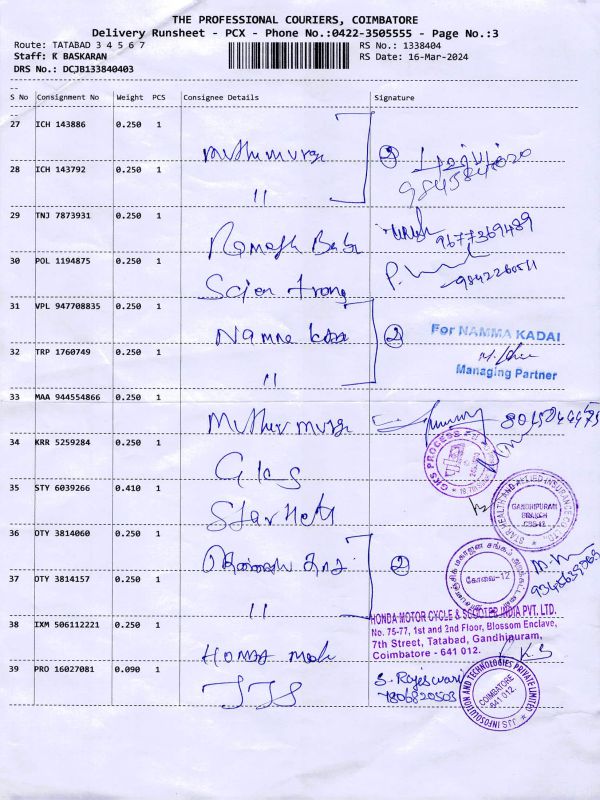 THE PROFESSIONAL COURIERS, COIMBATORE
Delivery Runsheet - PCX - Phone No.:0422-3505555 - Page No.:3
Route: TATABAD 3 4 5 6 7
RS No.: 1338404
Staff: K BASKARAN
RS Date: 16-Mar-2024
DRS No.: DCJB133840403
S No Consignment No Weight PCS Consignee Details Signature
27 ICH 143886 0.250 1
28 ICH 143792 0.250 1
"
29 TNJ 7873931 0.250 1
9677369489
30 POL 1194875 0.250 1
31 VPL 947708835 0.250 1
2
For NAMMA KADAI
32 TRP 1760749 0.250 1
"
Managing Partner
33 MAA 944554866 0.250 1
34 KRR 5259284 0.250 1
GKS PROCESS
35 STY 6039266 0.410 1
STAR HEALTH AND ALLIED INSURANCE CO. LTD.
GANDHIPURAM
BRANCH
CBE-12
36 OTY 3814060 0.250 1
2
கோவை-12
37 OTY 3814157 0.250 1
"
38 IXM 506112221 0.250 1
HONDA MOTOR CYCLE & SCOOTER INDIA PVT. LTD.
No. 75-77, 1st and 2nd Floor, Blossom Enclave,
7th Street, Tatabad, Gandhipuram,
Coimbatore - 641 012.
39 PRO 16027081 0.090 1
JJS
S. Rajeswari
7806820503
JJS INFOSOLUTION AND TECHNOLOGIES PRIVATE LIMITED
COIMBATORE
641 012.